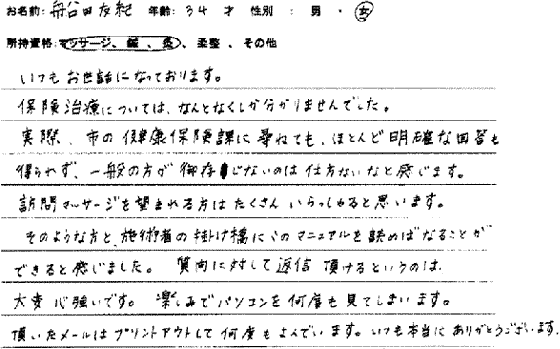 お名前: 舟谷田友紀 年齢: 34 才 性別 : 男 ・ 女
所持資格: マッサージ、鍼、灸、柔整、その他
いつもお世話になっております。
保険治療については、なんとなくしか分かりませんでした。
実際、市の健康保険課に尋ねても、ほとんど明確な回答も
得られず、一般の方が御存じないのは仕方ないなと感じます。
訪問マッサージを望まれる方はたくさんいらっしゃると思います。
そのような方と施術者の掛け橋にこのマニュアルを読めばなることが
できると感じました。 質問に対して返信頂けるというのは、
大変心強いです。 楽しみでパソコンを何度も見てしまいます。
頂いたメールはプリントアウトして何度もよんでいます。いつも本当にありがとうございます。